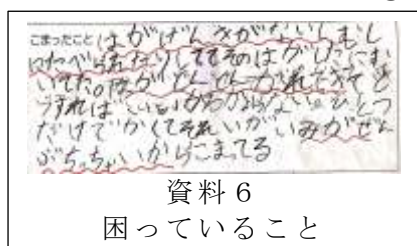 こまったこと はがげんきがないしむし
にたべられたりしててそのはがしたにむ
いてた。はがどんどんかれてきてど
うすればいいかわからない。ひとつ
だけでかくてそれいがいみがぜん
ぶちっちゃいからこまってる
資料6
困っていること